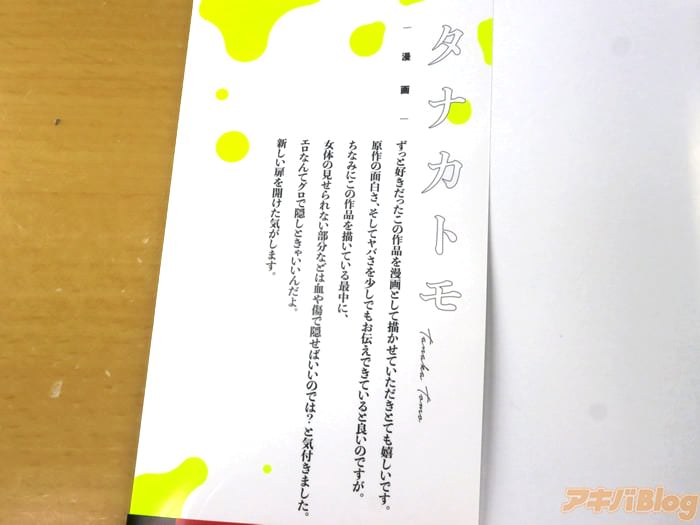 タナカトモ
Tanaka Tomo
漫画
ずっと好きだったこの作品を漫画として描かせていただきとても嬉しいです。
原作の面白さ、そしてヤバさを少しでもお伝えできていると良いのですが。
ちなみにこの作品を描いている最中に、
女体の見せられない部分などは血や傷で隠せばいいのでは？と気付きました。
エロなんてグロで隠しときゃいいんだよ。
新しい扉を開けた気がします。
アキバBlog